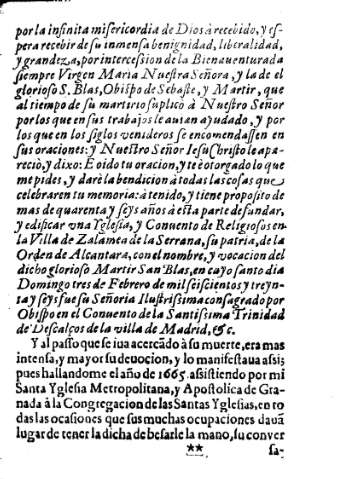 por la infinita misericordia de Dios à recebido, y es-
pera recebir de su inmensa benignidad, liberalidad,
y grandeza, por intercession de la Bienauenturada
siempre Virgen Maria Nuestra Señora, y la de el
glorioso S. Blas, Obispo de Sebaste, y Martir, que
al tiempo de su martirio suplicò à Nuestro Señor
por los que en sus trabajos le auian ayudado, y por
los que en los siglos venideros se encomendassen en
sus oraciones: y Nuestro Señor Iesu Christo le apa-
reciò, y dixo: E oido tu oracion, y te è otorgado lo que
me pides, y darè la bendicion à todas las cosas que
celebraren tu memoria: à tenido, y tiene proposito de
mas de quarenta y seys años à esta parte de fundar,
y edificar vna Yglesia, y Conuento de Religiosos en
la Villa de Zalamea de la Serrana, su patria, de la
Orden de Alcantara, con el nombre, y vocacion del
dicho glorioso Martir San Blas, en cuyo santo dia
Domingo tres de Febrero de mil seiscientos y treyn-
ta y seys fue su Señoria Ilustrissima consagrado por
Obispo en el Conuento de la Santissima Trinidad
de Descalços de la villa de Madrid, &c.
Y al passo que se iua acercado à su muerte, era mas
intensa, y mayor su deuocion, y lo manifestaua assi;
pues hallandome el año de 1665. assistiendo por mi
Santa Yglesia Metropolitana, y Apostolica de Gra-
nada à la Congregacion de las Santas Yglesias, en to
das las ocasiones que sus muchas ocupaciones dauã
lugar de tener la dicha de besarle la mano, su conver
** sa-